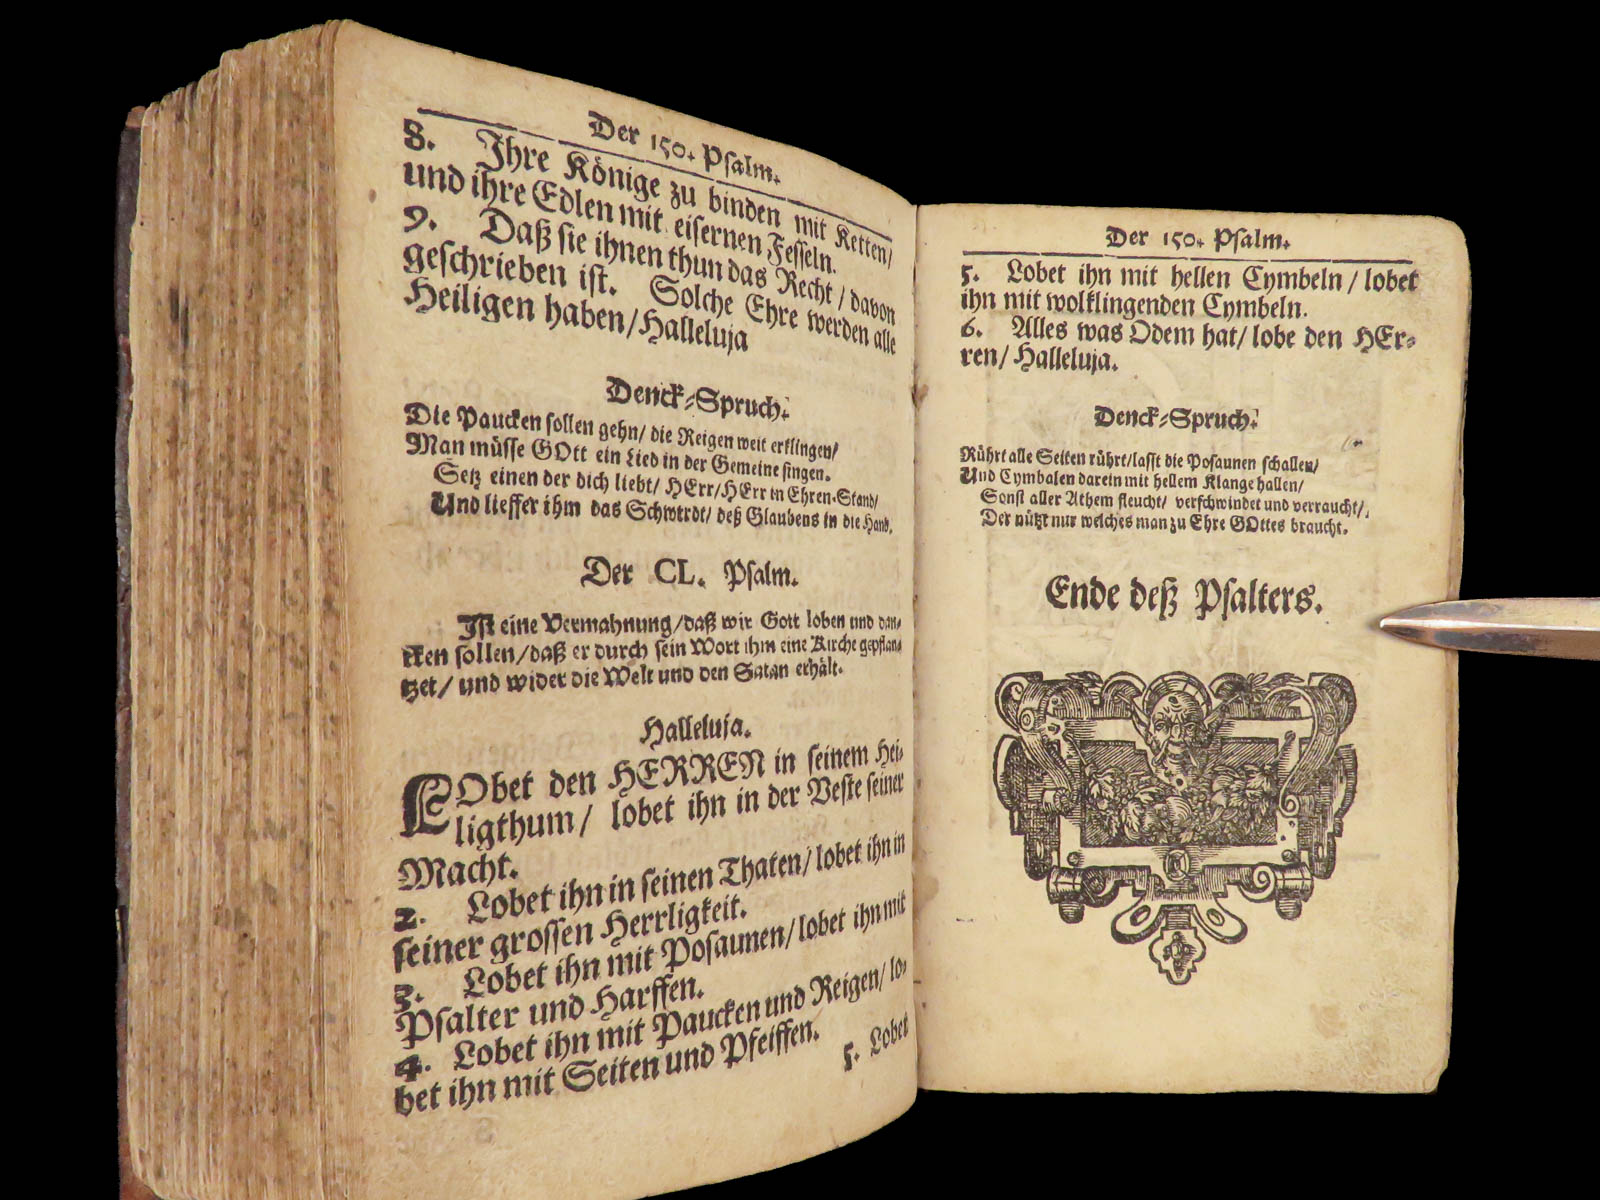 Der 150. Psalm.
8. Ihre Könige zu binden mit Ketten/
und ihre Edlen mit eisernen Fesseln.
9. Daß sie ihnen thun das Recht/ davon
geschrieben ist. Solche Ehre werden alle
Heiligen haben/Halleluja
Denck-Spruch.
Die Paucken sollen gehn/ die Reigen weit erklingen/
Man müsse GOtt ein Lied in der Gemeine singen.
Setz einen der dich liebt/ HErr/HErr in Ehren-Stand/
Und lieffer ihm das Schwerdt/ deß Glaubens in die Hand.
Der CL. Psalm.
Ist eine Vermahnung/daß wir Gott loben und dan-
cken sollen/daß er durch sein Wort ihm eine Kirche gepflan-
tzet/ und wider die Welt und den Satan erhält.
Halleluja.
LObet den HERREN in seinem Hei-
ligthum/ lobet ihn in der Veste seiner
Macht.
2. Lobet ihn in seinen Thaten/ lobet ihn in
seiner grossen Herrligkeit.
3. Lobet ihn mit Posaunen/lobet ihn mit
Psalter und Harffen.
4. Lobet ihn mit Paucken und Reigen/ lo-
bet ihn mit Seiten und Pfeiffen.
5. Lobet
Der 150. Psalm.
5. Lobet ihn mit hellen Cymbeln/ lobet
ihn mit wolklingenden Cymbeln.
6. Alles was Odem hat/ lobe den HEr-
ren/ Halleluja.
Denck-Spruch.
Rührt alle Seiten rührt/lasst die Posaunen schallen/
Und Cymbalen darein mit hellem Klange hallen/
Sonst aller Athem fleucht/ verschwindet und verraucht/
Der nützt nur welches man zu Ehre GOttes braucht.
Ende deß Psalters.